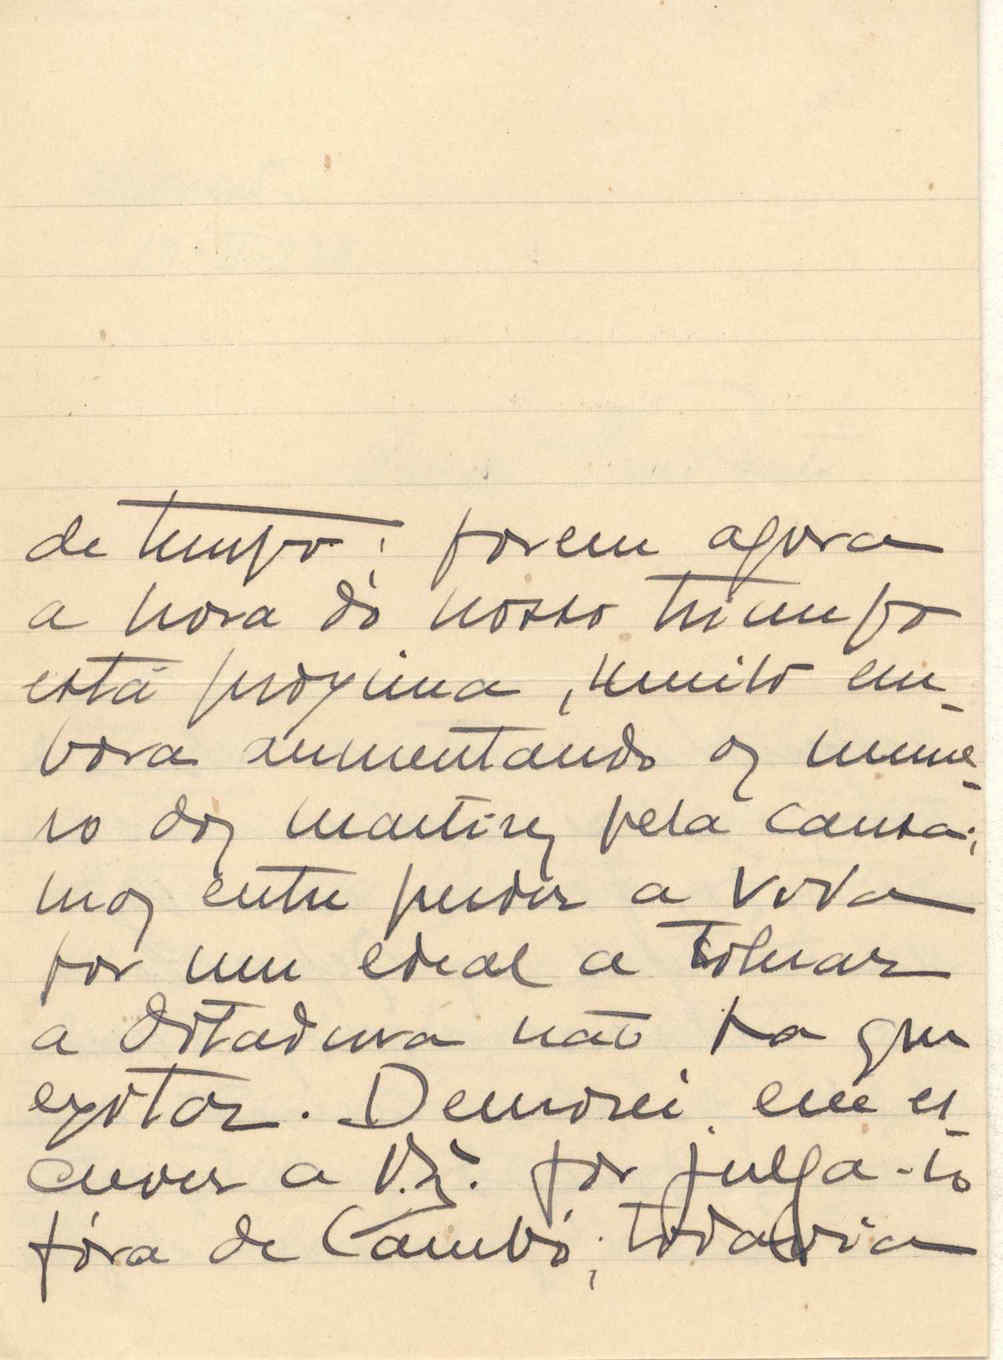 de tempo; porem agora
a hora do nosso triumpo
está proxima, muito em-
bora aumentando os nume-
ro dos martires pela causa;
mas entre perder a vida
por um edeal a tolerar
a ditadura não ha que
exitar. Demorei em es-
crever a V.S. por julga-lo
fóra de Cambó; todavia